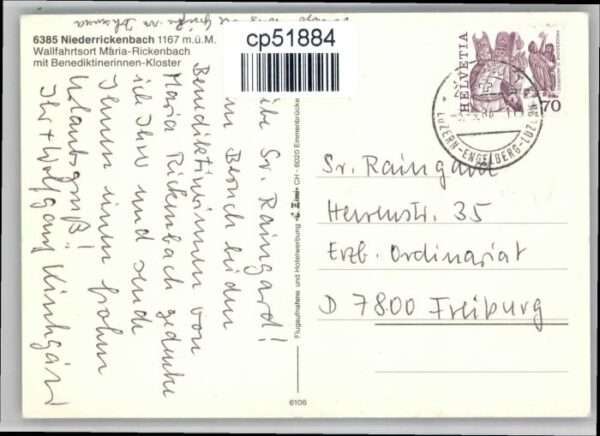 6385 Niederrickenbach 1167 m.ü.M.
Wallfahrtsort Maria-Rickenbach
mit Benediktinerinnen-Kloster
cp51884
HELVETIA
70
LUZERN-ENGELBERG-LUZERN
Sr. Raingard!
Besuch bei den
Benediktinerinnen von
Maria Rickenbach gedenke
ich Ihrer und sende
Ihnen einen frohen
Urlaubsgruß!
Ihr Wolfgang Kirchgäss
Sr. Raingard
Herrenstr. 35
Erzb. Ordinariat
D 7800 Freiburg
Flugaufnahme und Hotelwerbung
CH - 6020 Emmenbrücke
6106